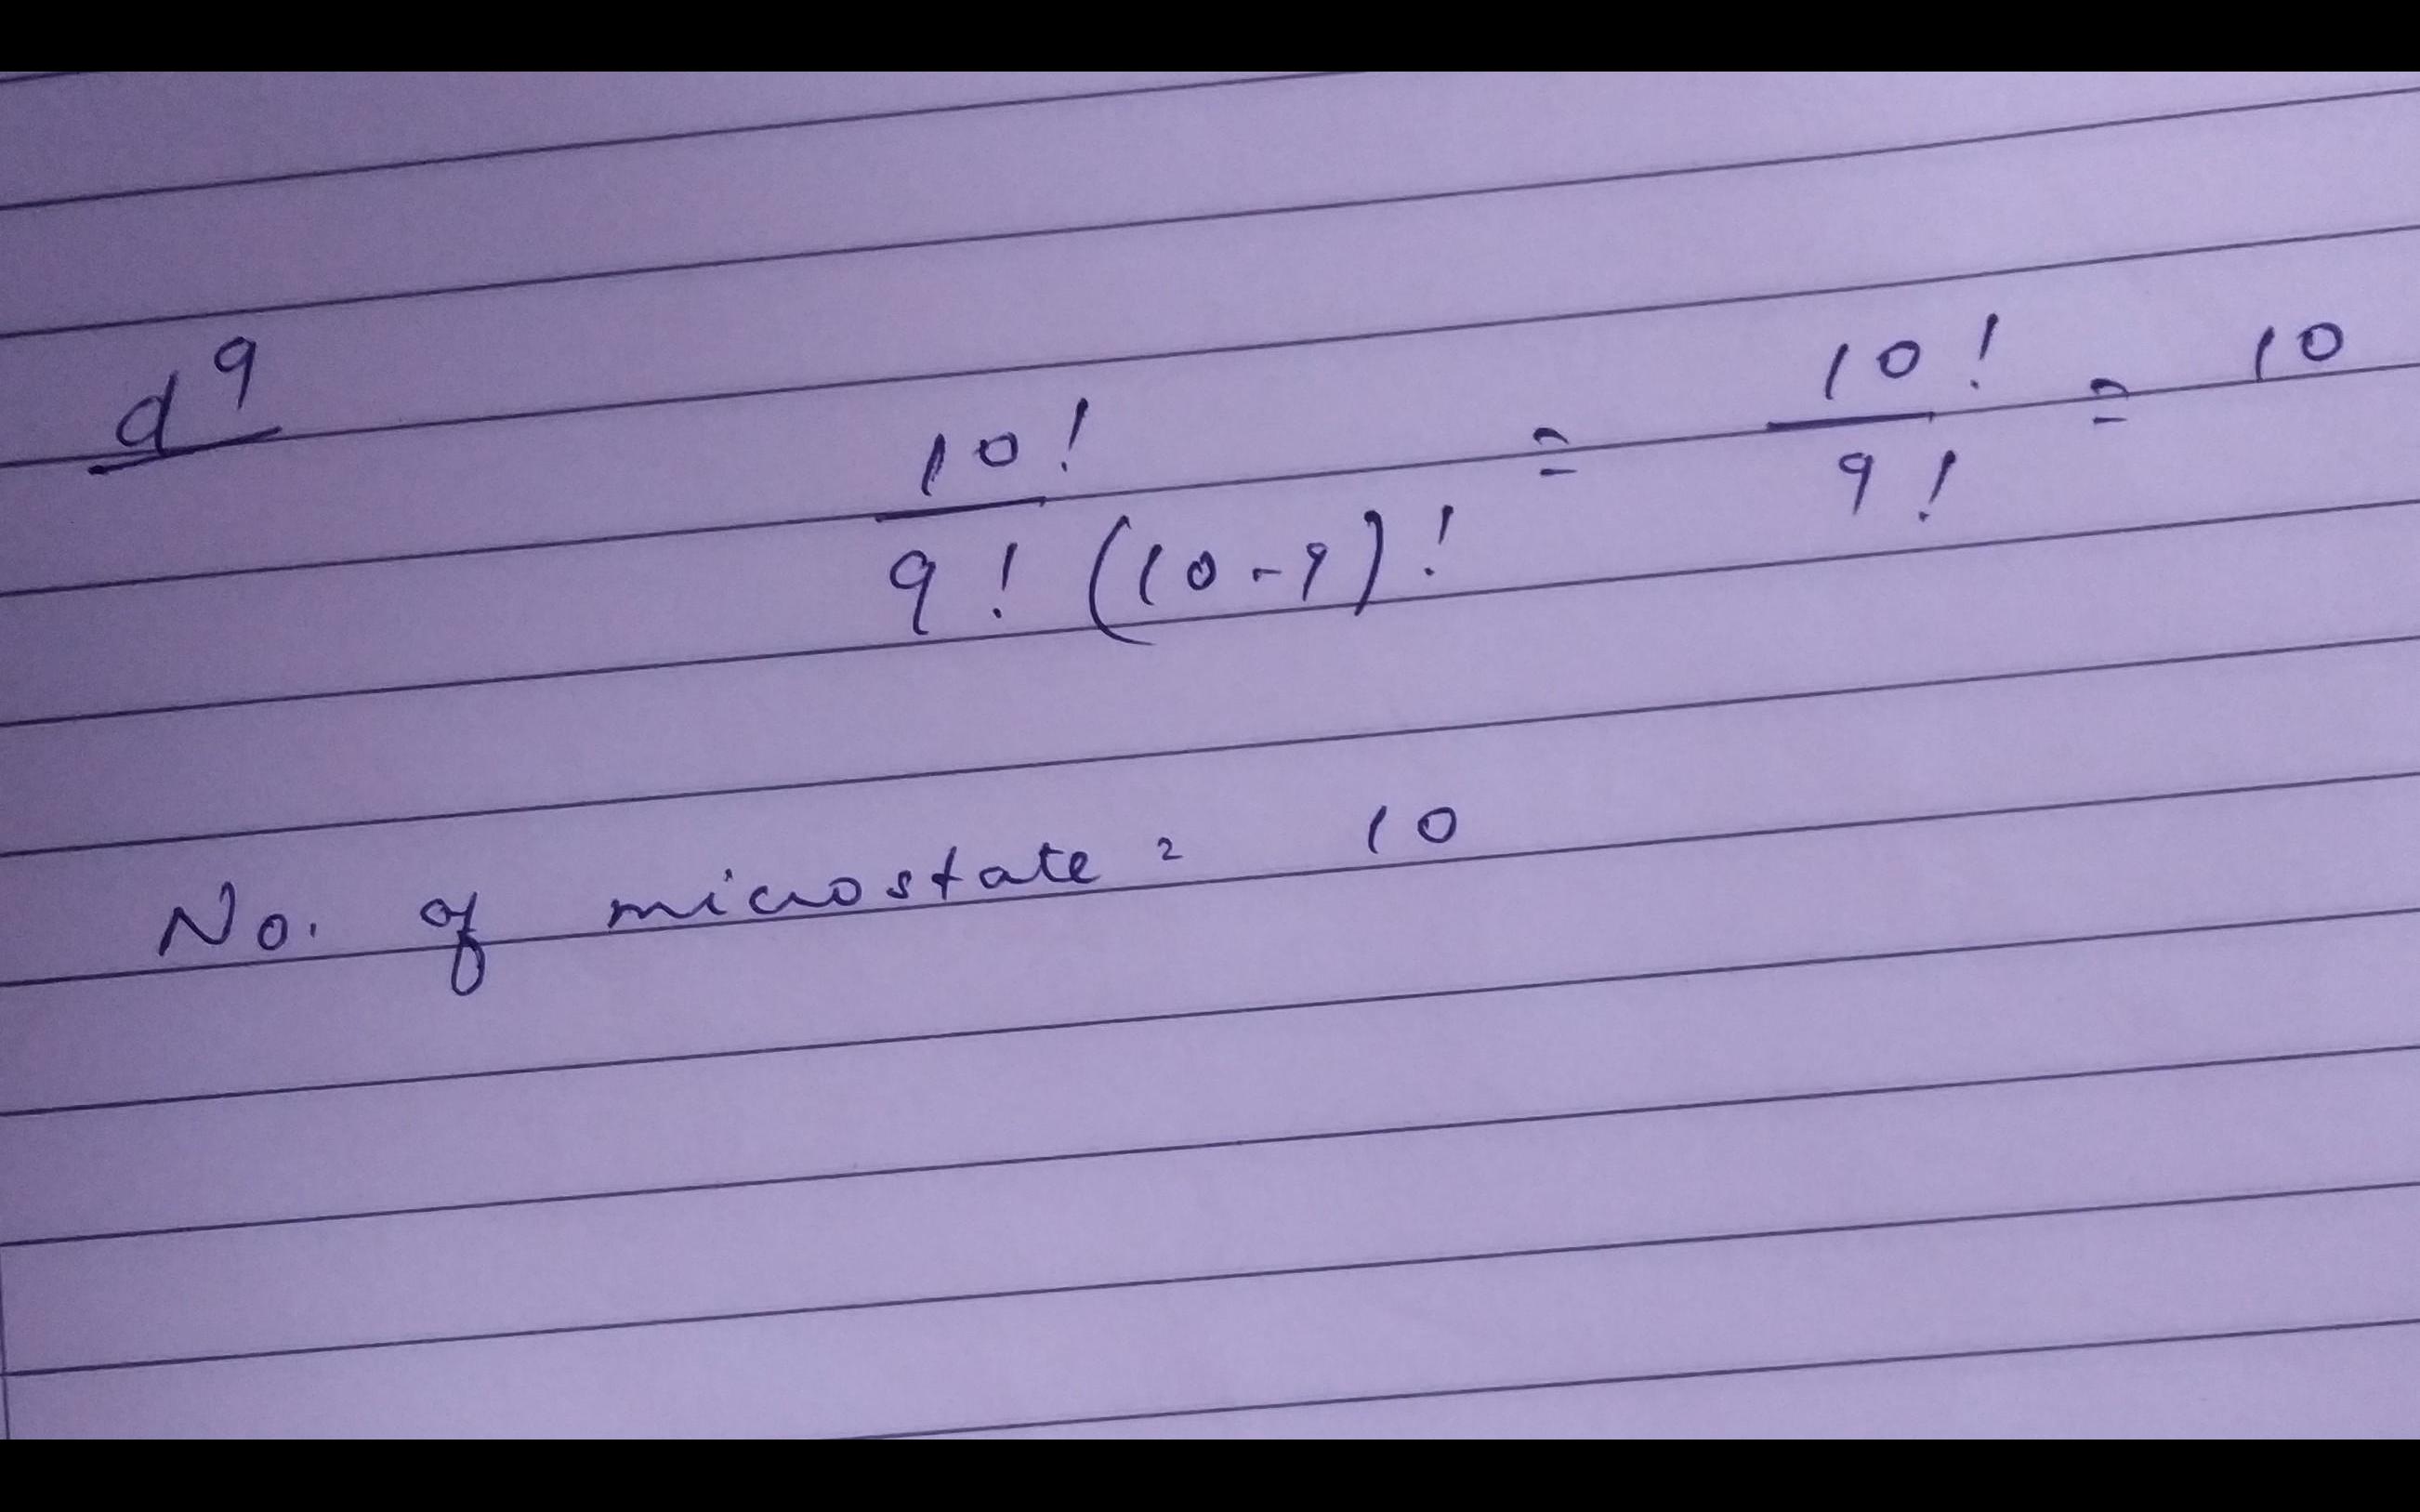 d⁹
10! / 9! (10-9)! = 10! / 9! = 10
No. of microstate = 10